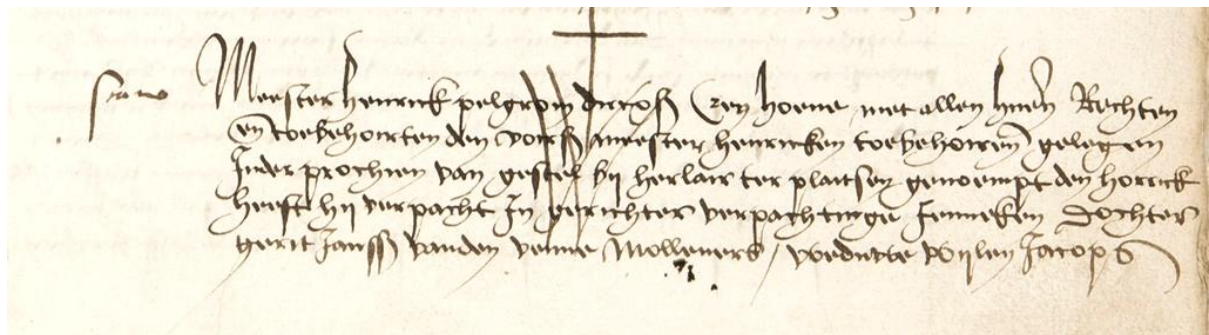 Meester Henrick pelgrom dircxß een hoeve met allen hueren Rechten
en toebehoirten den voirß meester Henricken toebehoiren gelegen
Inder prochien van gestel bij herlair ter plaitsen genoempt den horrick
heeft hij verpacht In gerichter verpachtinge Jenneken dochter
gerit Janssß vanden venne Molleners / weduwe wijlen Jacops